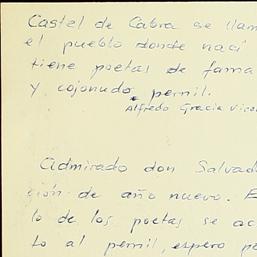 Castel de Cabra se llam
el pueblo donde nací
tiene poetas de fama
y cojonudo pernil.
Alfredo Gracia Vice
Admirado don Salvad
ción de año nuevo. E
lo de los poetas se ac
to al pernil, espero po